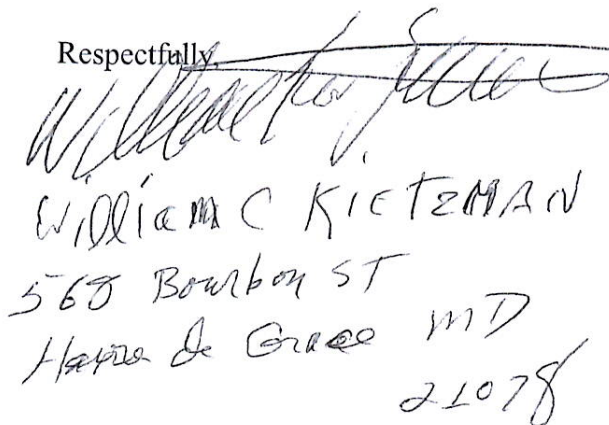 Respectfully,
William C KIETZMAN
568 Bourbon ST
Havre de Grace MD
21078